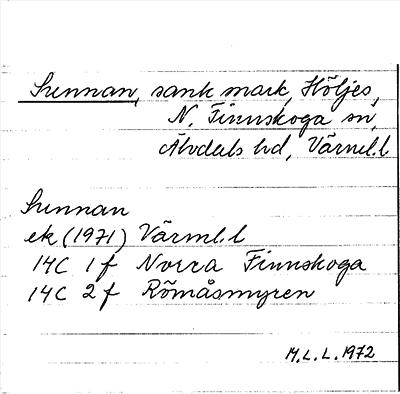 Sunnan, sank mark, Höljes,
N. Finnskoga sn,
Älvdals hd, Värml.l
Sunnan
ek (1971) Värml.l
14C 1f Norra Finnskoga
14C 2f Römåsmyren
M.L.L. 1972